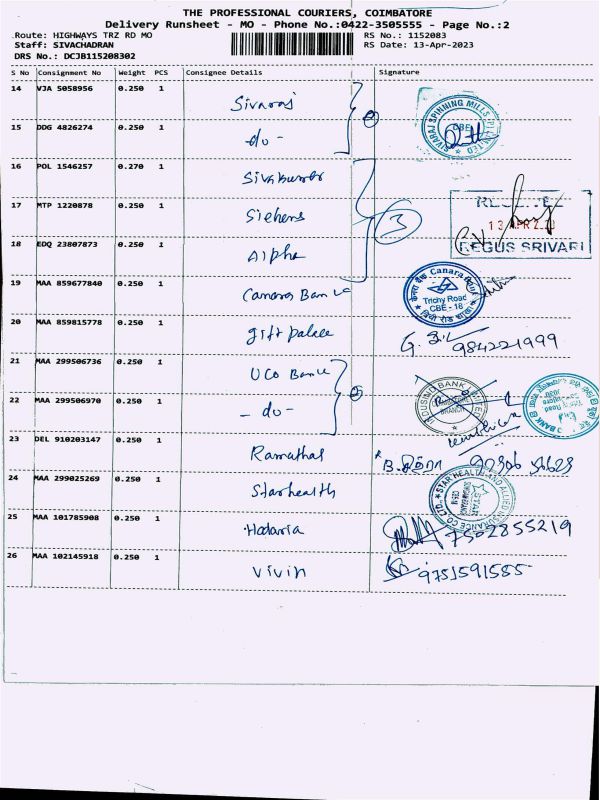 THE PROFESSIONAL COURIERS, COIMBATORE
Delivery Runsheet - MO - Phone No.:0422-3505555 - Page No.:2
Route: HIGHWAYS TRZ RD MO RS No.: 1152083
Staff: SIVACHADRAN RS Date: 13-Apr-2023
DRS No.: DCJB115208302
S No Consignment No Weight PCS Consignee Details Signature
14 VJA 5058956 0.250 1 Sivaraj
SIVARAJ SPINNING MILLS (P) LIMITED CBE
15 DDG 4826274 0.250 1 do -
16 POL 1546257 0.270 1 Sivakumar
17 MTP 1220878 0.250 1 Siehens 3
13 APR
REGUS SRIVARI
18 EDQ 23807873 0.250 1 Alpha
19 MAA 859677840 0.250 1 Canara Bank
Canara Bank
Trichy Road
CBE - 18
20 MAA 859815778 0.250 1 gift palace
984221999
21 MAA 299506736 0.250 1 UCO Bank
22 MAA 299506970 0.250 1 - do -
HOUSING BANK LIMITED
BRANCH
23 DEL 910203147 0.250 1 Ramathal
24 MAA 299025269 0.250 1 Starhealth
STAR HEALTH AND ALLIED INSURANCE CO.LTD.
25 MAA 101785908 0.250 1 Hodaria 7502855219
26 MAA 102145918 0.250 1 Vivin 9751591585